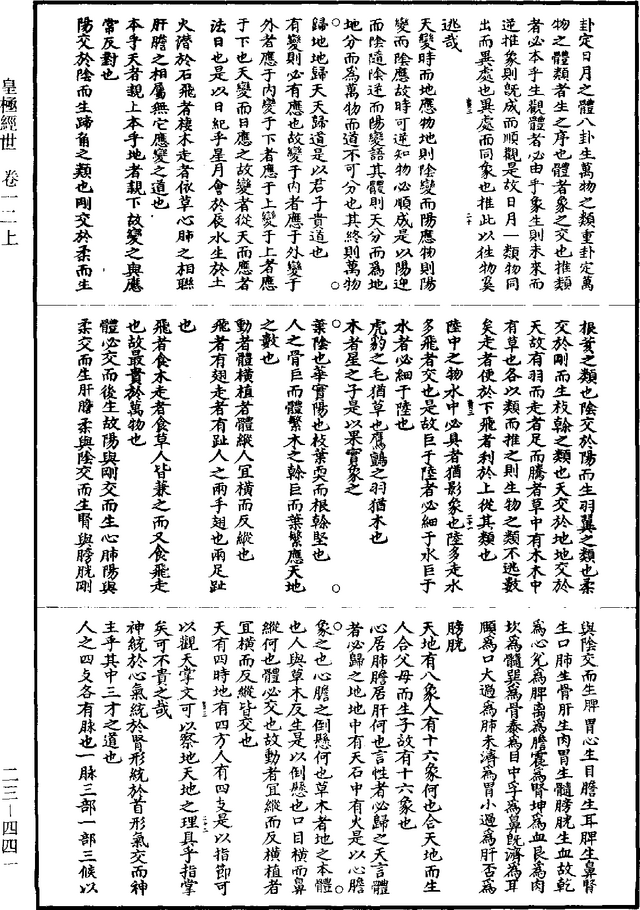 皇極經世 卷一二上
二三—四四一
卦定日月之體八卦生萬物之類重卦定萬
物之體類者生之序也體者象之交也推類
者必本乎生觀體者必由乎象生則未來而
逆推象則既成而順觀是故日月一類物同
出而異處也異處而同象也推此以往物奚
逃哉
天變時而地應物地則陰變而陽應物則陽
變而陰應故時可逆知物必順成是以陽迎
而陰隨陰逆而陽變語其體則天分而為地
地分而為萬物而道不可分也其終則萬物
歸地地歸天天歸道是以君子貴道也
有變則必有應也故變于內者應于外變于
外者應于內變于下者應于上變于上者應
于下也天變而日應之故變者從天而應者
法日也是以日紀乎星月會於辰水生於土
火潛於石飛者棲木走者依草心肺之相聯
肝膽之相屬無它應變之道也
本乎天者親上本乎地者親下故變之與應
常反對也
陽交於陰而生蹄角之類也剛交於柔而生
根荄之類也陰交於陽而生羽翼之類也柔
交於剛而生枝榦之類也天交於地地交於
天故有羽而走者足而騰者草中有木木中
有草也各以類而推之則生物之類不逃數
矣走者便於下飛者利於上從其類也
陸中之物水中必具者猶影象也陸多走水
多飛者交也是故巨于陸者必細于水巨于
水者必細于陸也
虎豹之毛猶草也鷹鸇之羽猶木也
木者星之子是以果實象之
葉陰也華實陽也枝葉耎而根榦堅也
人之骨巨而體繁木之榦巨而葉繁應天地
之數也
動者體橫植者體縱人宜橫而反縱也
飛者有翅走者有趾人之兩手翅也兩足趾
也
飛者食木走者食草人皆兼之而又食飛走
也故最貴於萬物也
體必交而後生故陽與剛交而生心肺陽與
柔交而生肝膽柔與陰交而生腎與膀胱剛
與陰交而生脾胃心生目膽生耳脾生鼻腎
生口肺生骨肝生肉胃生髓膀胱生血故乾
為心兌為脾離為膽震為腎坤為血艮為肉
坎為髓巽為骨泰為目中孚為鼻既濟為耳
頤為口大過為肺未濟為胃小過為肝否為
膀胱
天地有八象人有十六象何也合天地而生
人合父母而生子故有十六象也
心居肺膽居肝何也言性者必歸之天言體
者必歸之地地中有天石中有火是以心膽
象之也心膽之倒懸何也草木者地之本體
也人與草木反生是以倒懸也口目橫而鼻
縱何也體必交也故動者宜縱而反橫植者
宜橫而反縱皆交也
天有四時地有四方人有四支是以指節可
以觀天掌文可以察地天地之理具乎指掌
矣可不貴之哉
神統於心氣統於腎形統於首形氣交而神
主乎其中三才之道也
人之四支各有脉也一脉三部一部三候以